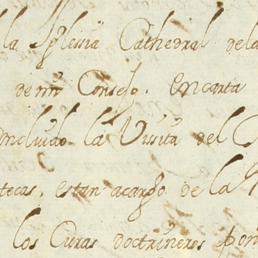 la Iglesia Cathedral dela
de mi Consejo, en carta
concluido la Visita del
tecas, estan acargo de la
los Curas doctrineros por